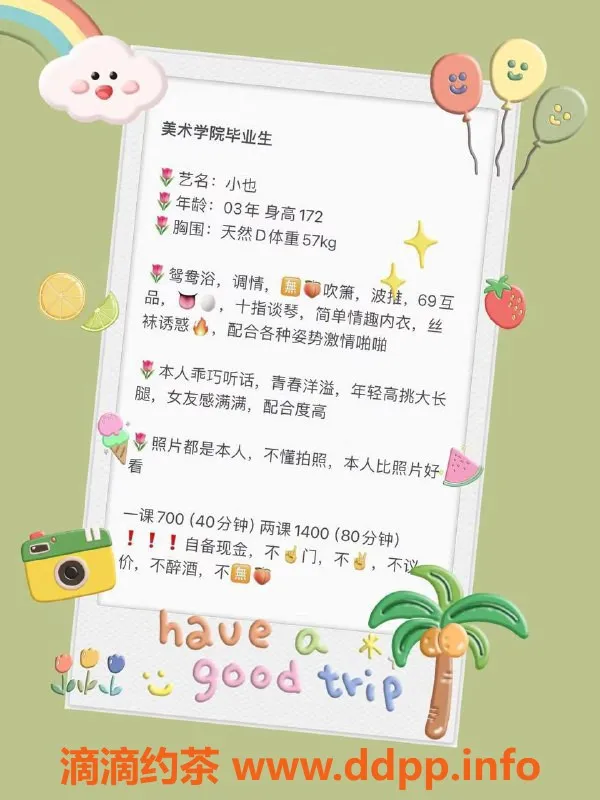 美术学院毕业生
🌷艺名：小也
🌷年龄：03年 身高172
🌷胸围：天然D体重57kg
🌷鸳鸯浴，调情，🈚🍑吹箫，波推，69互
品，👅🥚，十指谈琴，简单情趣内衣，丝
袜诱惑🔥，配合各种姿势激情啪啪
🌷本人乖巧听话，青春洋溢，年轻高挑大长
腿，女友感满满，配合度高
🌷照片都是本人，不懂拍照，本人比照片好
看
一课700（40分钟）两课1400（80分钟）
❗❗❗自备现金，不☝门，不✌，不议
价，不醉酒，不🈚🍑
have a
good trip
滴滴约茶 www.ddpp.info